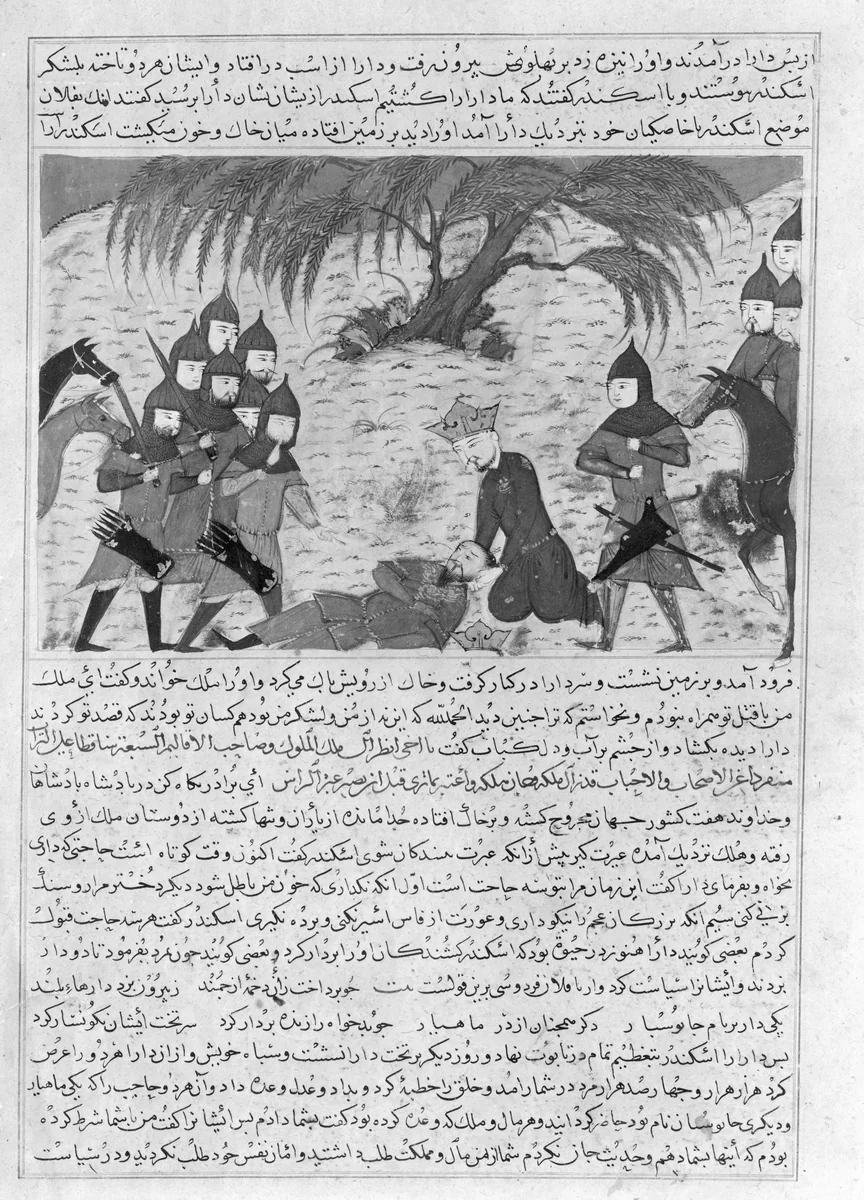 از پس دارا درآمدند و او را نیزه زد بر پهلویش بیرون رفت و دارا از اسب در افتاد و ایشان هر دو تاختند بلشکر
اسکندر پیوستند و با اسکندر کفتند که ما دارا را کشتیم اسکندر از یشان نشان دارا برسید کفتند اینک بفلان
موضع اسکندر با خاصکیان خود بنزدیک دارا آمد او را دید بر زمین افتاده میان خاک و خون میکشت اسکندر آنجا
فرود آمد و بر زمین نشست و سر دارا در کنار کرفت و خاک از رویش پاک می کرد و او را ملک خواند و کفت ای ملک
من با قبل تو همراه نبودم و نخواستم که ترا جنین دید الحمدلله که این بد از من و لشکر من نبود هم کسان تو بودند که قصد تو کردند
دارا دیده بکشاد و از چشم پر آب و دل کباب کفت یا اخی انظر الی ملک الملوک و صاحب الاقالیم السبعة ساقطا علی التراب
منفردا عن الاصحاب والاحباب قد زال ملکه وحان هلکه واعتبر بما تری قبل ان تصیر عبرا للناس ای برادر نکاه کن در پادشاه پادشاهان
و خداوند هفت کشور جهان مجروح کشته و بر خاک افتاده جدا مانده از یاران و تنها کشته از دوستان ملک از وی
رفته و هلک نزدیک آمده عبرت کیر پیش از آنکه عبرت بینندکان شوی اسکندر کفت اکنون وقت کوتاه است حاجتی که داری
بخواه و بفرمای دارا کفت این زمان مرا بتو سه حاجت است اول آنکه نکذاری که خون من باطل شود دیکر دختر مرا روشنک
بزنی کنی سیم آنکه بزرکان عجم را نیکو داری و عورت از فارس اسیر نکنی و برده نکیری اسکندر کفت هر سه حاجت قبول
کردم بعضی کویند دارا هنوز در حیوة بود که اسکندر کشندکان او را بر دار کرد و بعضی کویند چون بمرد بفرمود تا دو دار
بزدند و ایشان را سیاست کرد و ار با فلان فردوسی برین قولست بیت چو پرداخت از آن دخمهٔ ارجمند ز بیرون بزد دارهاء بلند
یکی دار بر نام جانوسیار دکر همجنان از در ماهیار دو بدخواه را زنده بر دار کرد سر تخت ایشان نکونسار کرد
پس دارا را اسکندر بتعظیم تمام در تابوت نهاد و روز دیکر بر تخت دارا نشست و سپاه خویش و از آن دارا هر دو را عرض
کرد هزار هزار و جهار صد هزار مرد در شمار آمد و خلق را خطبه کرد و بداد و عدل وعده داد و آن هر دو حاجب را که یکی ماهیار
و دیکری جانوسیار نام بود حاضر کردانید و هر مال و ملک که وعده کرده بود کفت بشما دادم پس ایشان را کفت من با شما شرط کرده
بودم که اینها بشما دهم و حدیث جان نکردم شما از من مال و مملکت طلب داشتید و امان نفس خود طلب نکردید و در سیاست